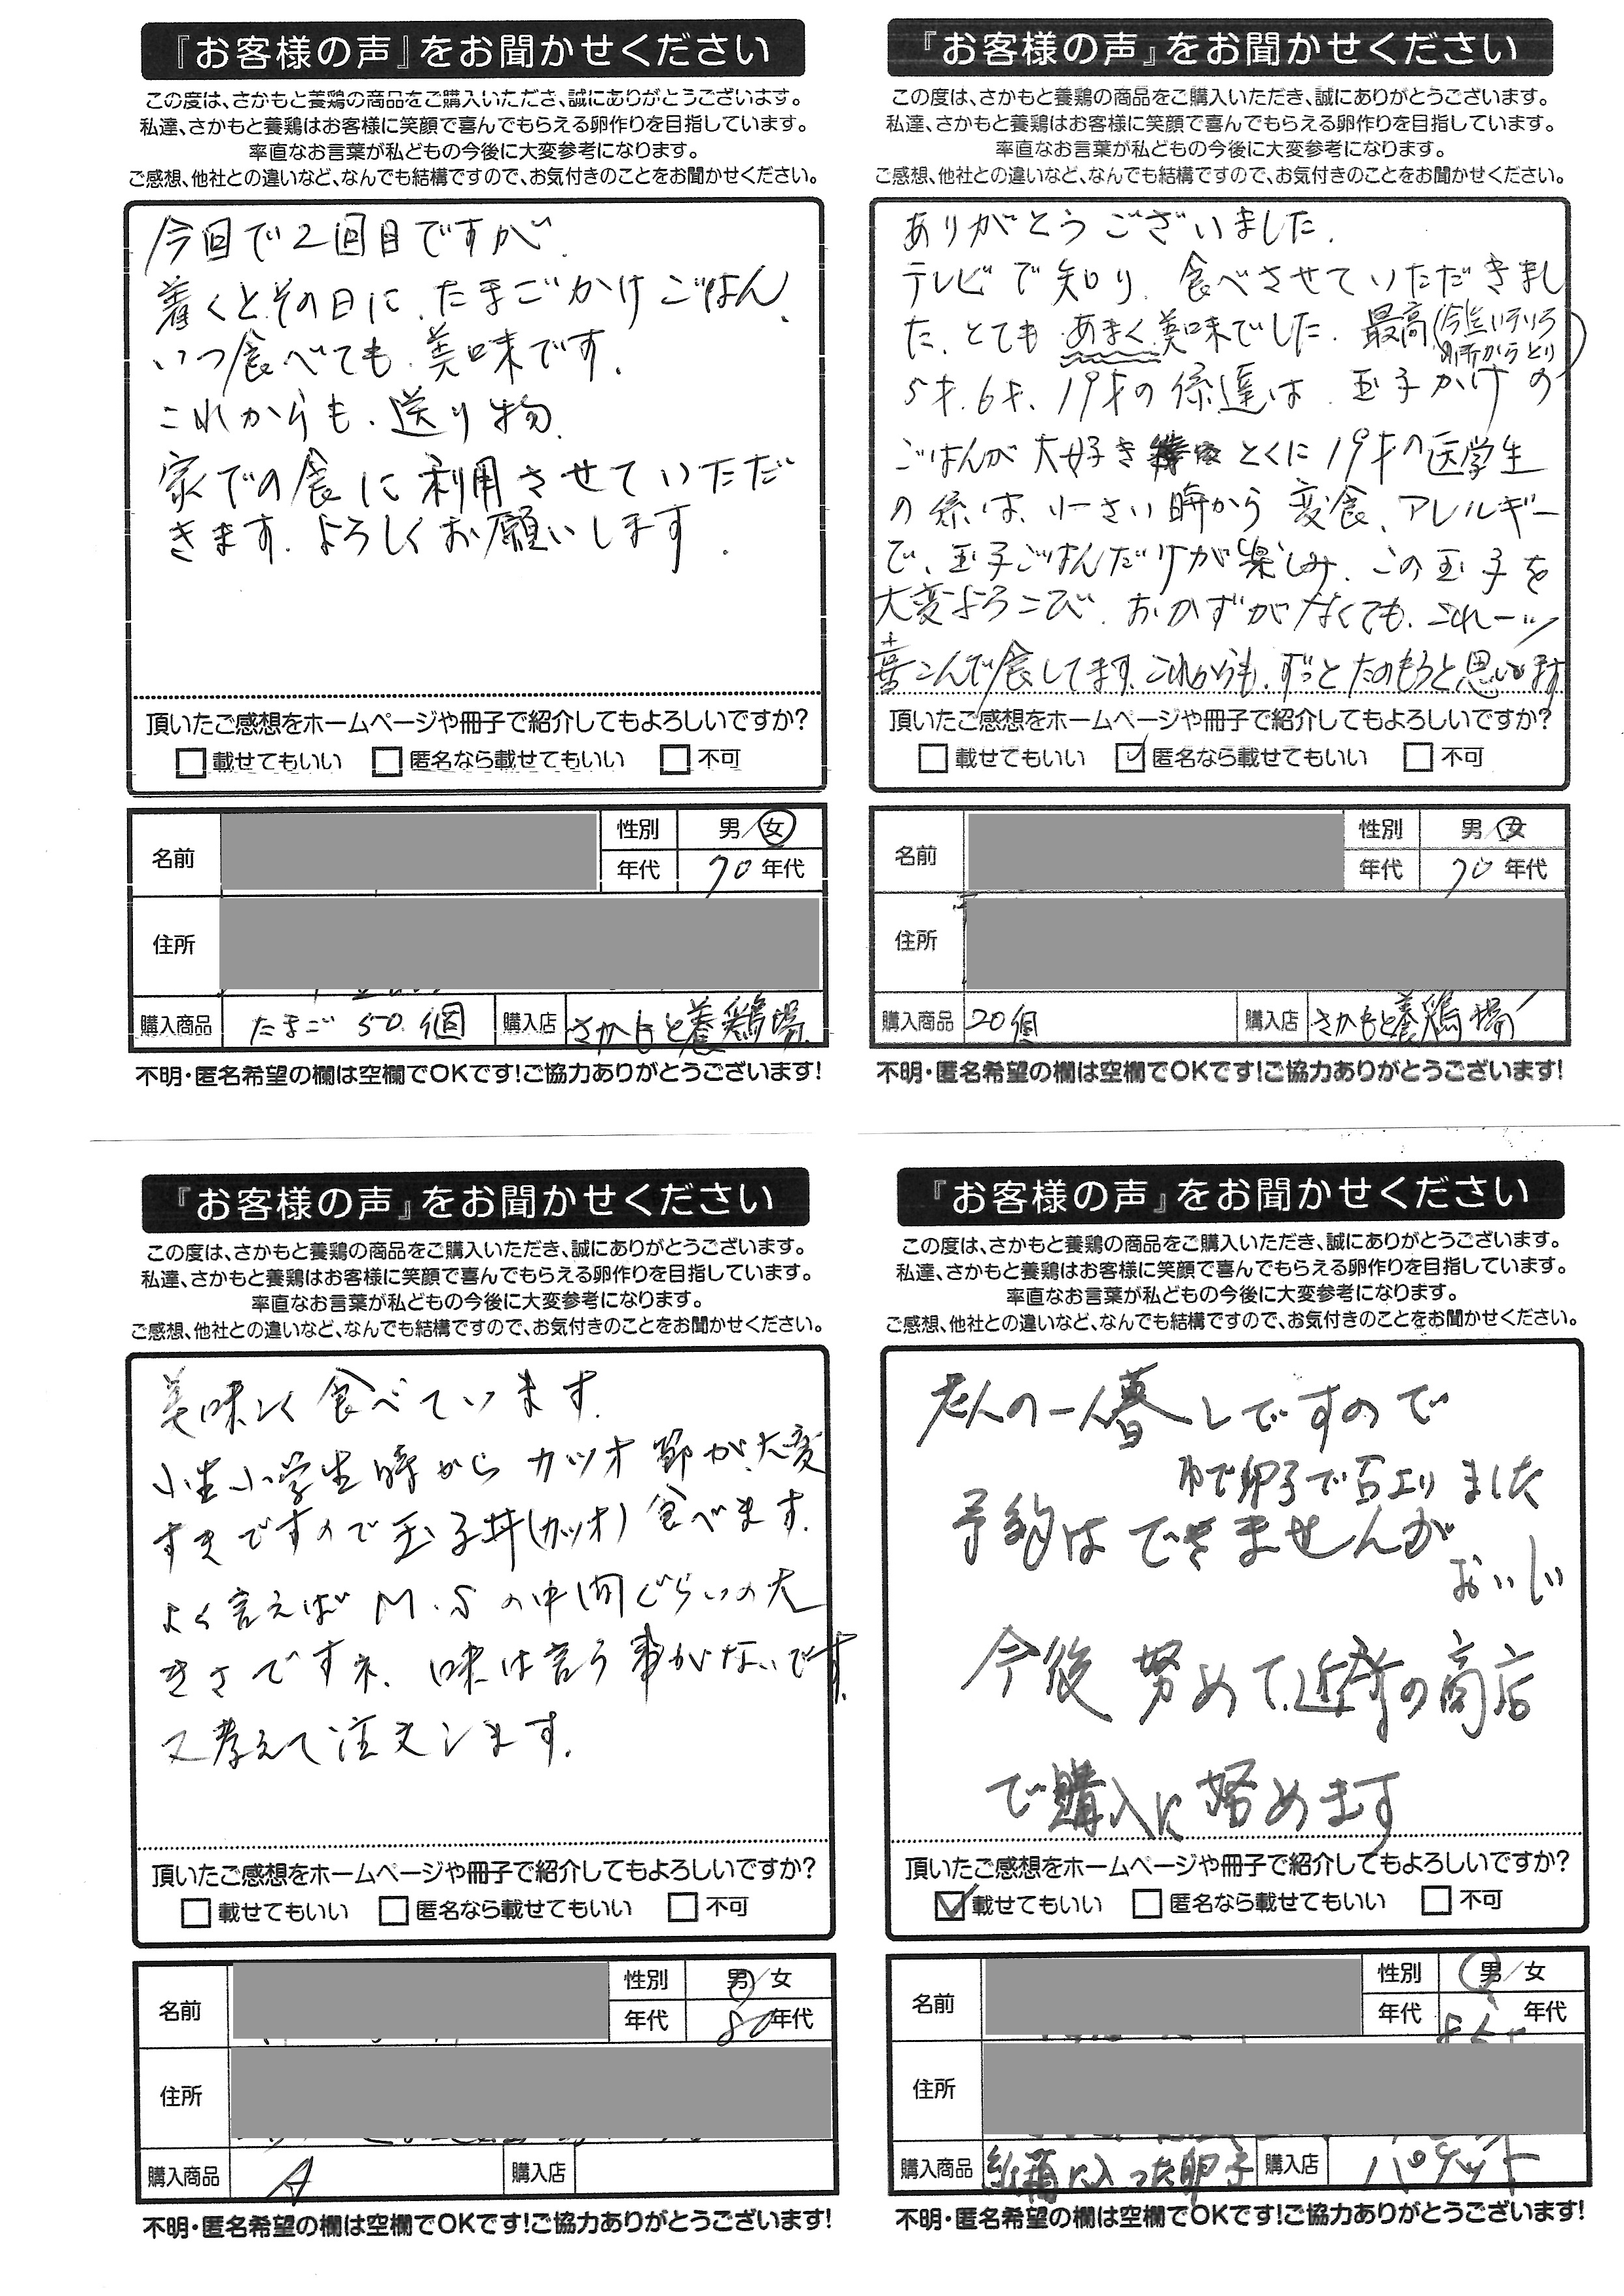 『お客様の声』をお聞かせください
この度は、さかもと養鶏の商品をご購入いただき、誠にありがとうございます。
私達、さかもと養鶏はお客様に笑顔で喜んでもらえる卵作りを目指しています。
率直なお言葉が私どもの今後に大変参考になります。
ご感想、他社との違いなど、なんでも結構ですので、お気付きのことをお聞かせください。
今回で2回目ですが、
着くとその日に、たまごかけごはん、
いつ食べても、美味です。
これからも、送り物、
家での食に利用させていただ
きます。よろしくお願いします。
頂いたご感想をホームページや冊子で紹介してもよろしいですか?
載せてもいい 匿名なら載せてもいい 不可
名前 性別 男/女
年代 70年代
住所
購入商品 たまご 50個 購入店 さかもと養鶏場
不明・匿名希望の欄は空欄でOKです!ご協力ありがとうございます!
『お客様の声』をお聞かせください
この度は、さかもと養鶏の商品をご購入いただき、誠にありがとうございます。
私達、さかもと養鶏はお客様に笑顔で喜んでもらえる卵作りを目指しています。
率直なお言葉が私どもの今後に大変参考になります。
ご感想、他社との違いなど、なんでも結構ですので、お気付きのことをお聞かせください。
ありがとうございました。
テレビで知り、食べさせていただきまし
た。とても あまく美味でした。最高(今迄いろいろ
所からとり)
5才、6才、19才の孫達は、玉子かけの
ごはんが大好き とくに19才の医学生
の孫は、小さい時から変食、アレルギー
で、玉子ごはんだけが楽しみ、この玉子を
大変よろこび、おかずがなくても、これ一ツ
喜こんで食してます。これからも、ずっとたのもうと思います
頂いたご感想をホームページや冊子で紹介してもよろしいですか?
載せてもいい 匿名なら載せてもいい 不可
名前 性別 男/女
年代 70年代
住所
購入商品 20個 購入店 さかもと養鶏場
不明・匿名希望の欄は空欄でOKです!ご協力ありがとうございます!
『お客様の声』をお聞かせください
この度は、さかもと養鶏の商品をご購入いただき、誠にありがとうございます。
私達、さかもと養鶏はお客様に笑顔で喜んでもらえる卵作りを目指しています。
率直なお言葉が私どもの今後に大変参考になります。
ご感想、他社との違いなど、なんでも結構ですので、お気付きのことをお聞かせください。
美味しく食べています。
小生小学生時からカツオ節が大変
すきですので玉子丼(カツオ)食べます。
よく言えばM.Sの中間ぐらいの大
きさですネ、味は言う事がないです。
又考えて注文します。
頂いたご感想をホームページや冊子で紹介してもよろしいですか?
載せてもいい 匿名なら載せてもいい 不可
名前 性別 男/女
年代 80年代
住所
購入商品 購入店
不明・匿名希望の欄は空欄でOKです!ご協力ありがとうございます!
『お客様の声』をお聞かせください
この度は、さかもと養鶏の商品をご購入いただき、誠にありがとうございます。
私達、さかもと養鶏はお客様に笑顔で喜んでもらえる卵作りを目指しています。
率直なお言葉が私どもの今後に大変参考になります。
ご感想、他社との違いなど、なんでも結構ですので、お気付きのことをお聞かせください。
老人の一人暮しですので
ゆで卵子で ました
予約はできませんが
おいしい
今後努めて近所の商店
で購入に努めます
頂いたご感想をホームページや冊子で紹介してもよろしいですか?
載せてもいい 匿名なら載せてもいい 不可
名前 性別 男/女
年代 年代
住所
購入商品 紙箱に入った卵子 購入店
不明・匿名希望の欄は空欄でOKです!ご協力ありがとうございます!